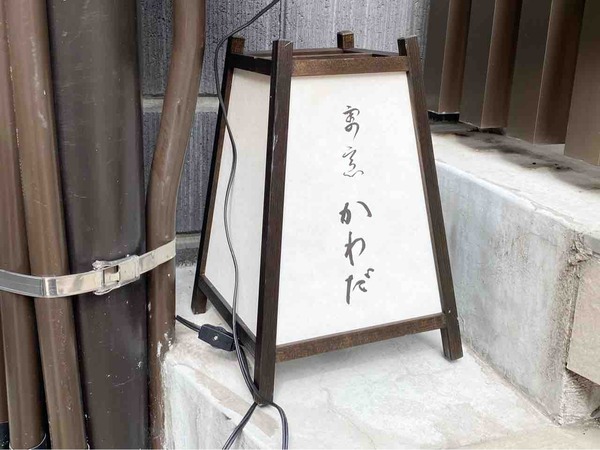 割烹 かわだ